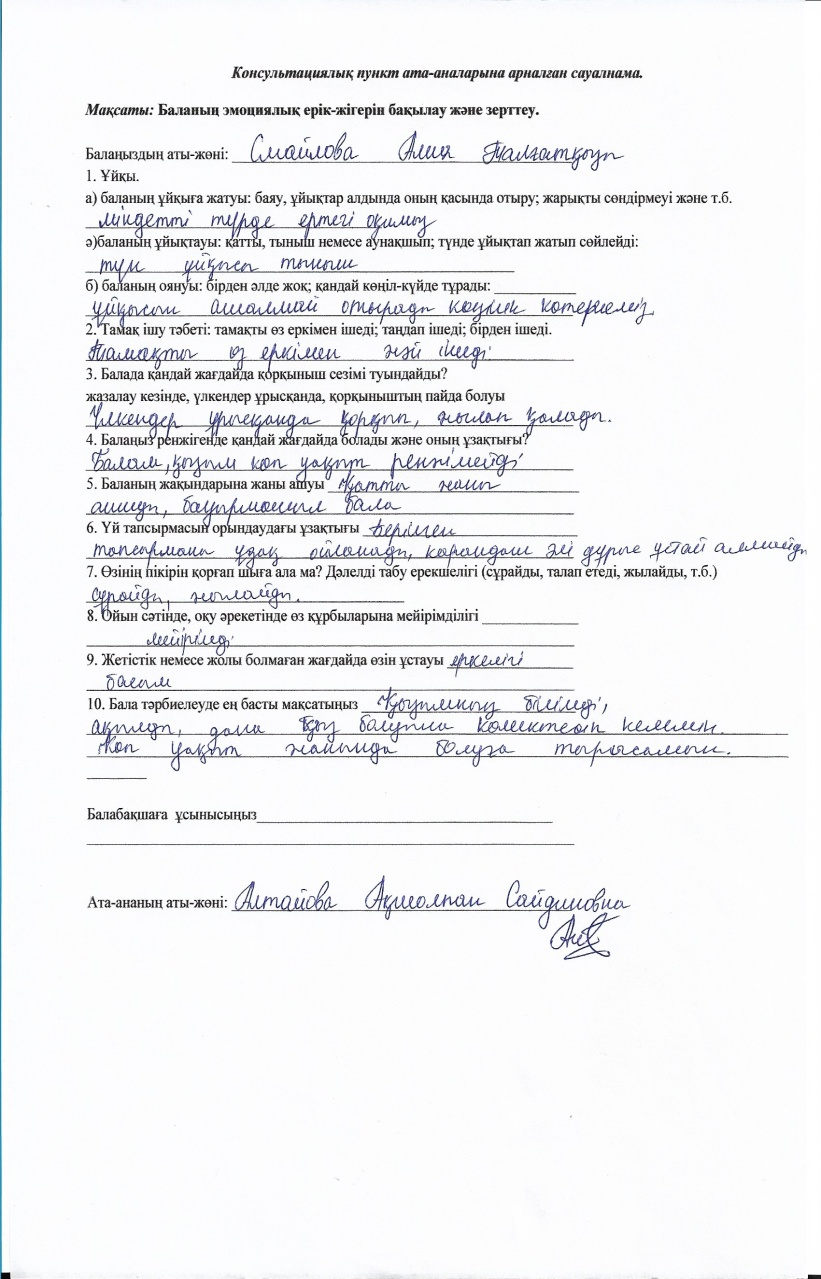 Консультациялық пункт ата-аналарына арналған сауалнама.
Мақсаты: Баланың эмоциялық ерік-жігерін бақылау және зерттеу.
Балаңыздың аты-жөні: Смайлова Алия Талғатқызы
1. Ұйқы.
а) баланың ұйқыға жатуы: баяу, ұйықтар алдында оның қасында отыру; жарықты сөндірмеуі және т.б.
міндетті түрде ертегі оқимыз
ә)баланың ұйықтауы: қатты, тыныш немесе аунақшып; түнде ұйықтап жатып сөйлейді:
түн ұйқысы тыныш
б) баланың оянуы: бірден әлде жоқ; қандай көңіл-күйде тұрады:
ұйқысын ашалмай отырады көңілін көтереміз
2. Тамақ ішу тәбеті: тамақты өз еркімен ішеді; таңдап ішеді; бірден ішеді.
Тамақты өз еркімен жәй ішеді
3. Балада қандай жағдайда қорқыныш сезімі туындайды?
жазалау кезінде, үлкендер ұрысқанда, қорқыныштың пайда болуы
Үлкендер ұрысқанда қорқып, жылап қалады.
4. Балаңыз ренжігенде қандай жағдайда болады және оның ұзақтығы?
Балам, қызым көп уақыт ренжімейді
5. Баланың жақындарына жаны ашуы Қатты жаны
ашиды, бауырмашыл бала
6. Үй тапсырмасын орындаудағы ұзақтығы Берілген
тапсырманы ұзақ ойланады, қарандаш әлі дұрыс ұстай алмайды
7. Өзінің пікірін қорғап шыға ала ма? Дәлелді табу ерекшелігі (сұрайды, талап етеді, жылайды, т.б.)
сұрайды, жылайды.
8. Ойын сәтінде, оқу әрекетінде өз құрбыларына мейірімділігі
мейірімді
9. Жетістік немесе жолы болмаған жағдайда өзін ұстауы еркелігі
басым
10. Бала тәрбиелеуде ең басты мақсатыңыз Қызымның білімді,
ақылды, дана қыз болуына көмектесіп келемін.
Көп уақыт жанында болуға тырысамын.
Балабақшаға ұсынысыңыз
Ата-ананың аты-жөні: Алтайова Ақмолпан